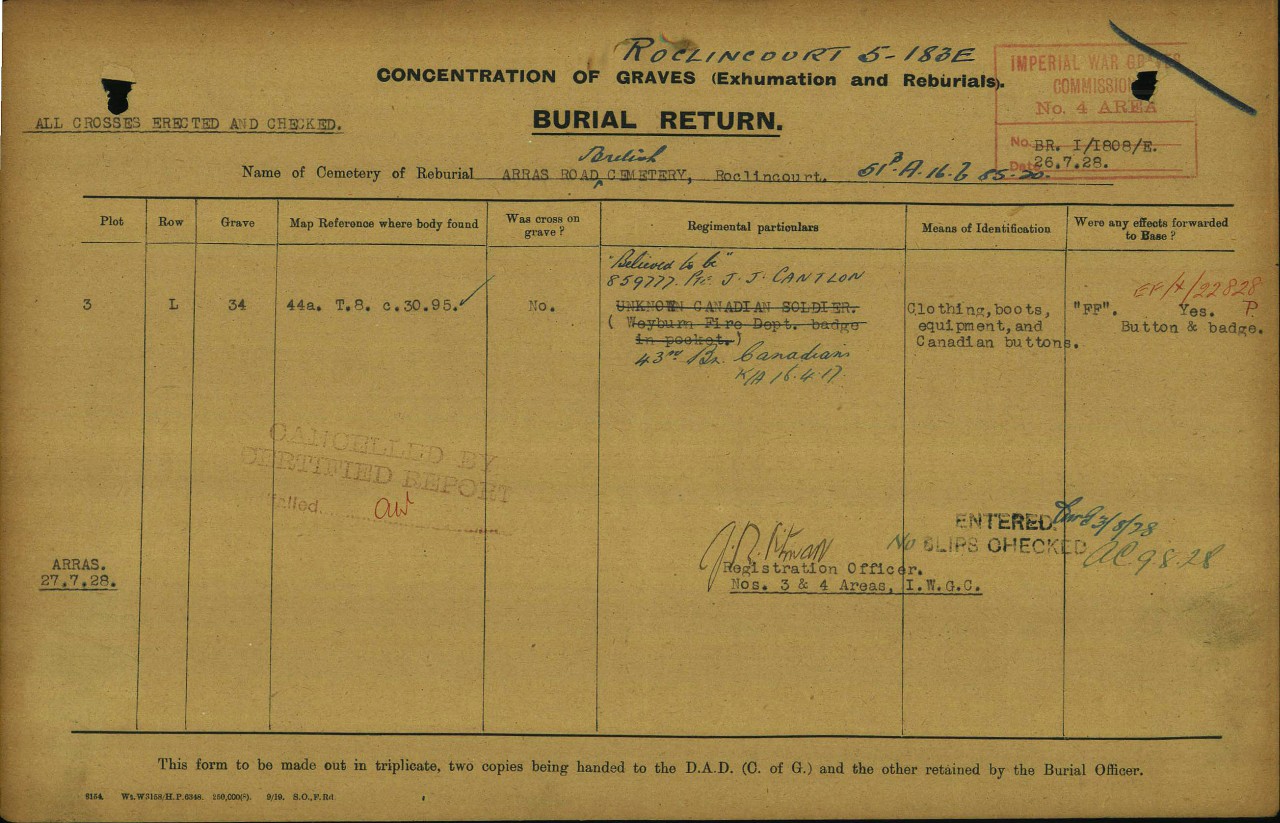 ROCLINCOURT 5-183E
CONCENTRATION OF GRAVES (Exhumation and Reburials).
IMPERIAL WAR GRAVES
COMMISSION
No. 4 AREA
ALL CROSSES ERECTED AND CHECKED.
BURIAL RETURN.
No. BR. I/1808/E.
Date 26.7.28.
British
Name of Cemetery of Reburial ARRAS ROAD CEMETERY, Roclincourt. 51B A.16.b 85.20.
Plot Row Grave Map Reference where body found Was cross on grave? Regimental particulars Means of Identification Were any effects forwarded to Base?
"Believed to be"
859777 Pte J. J. CANTLON
EF/4/22828
3 L 34 44a. T.8. c.30.95. No. UNKNOWN CANADIAN SOLDIER. Clothing, boots, "FF". Yes. P.
( Weyburn Fire Dept. badge equipment, and Button & badge.
in pocket.) Canadian buttons.
43rd Bn. Canadians
K/A 16.4.17
CANCELLED BY
CERTIFIED REPORT
aw
ENTERED 3/8/28
No SLIPS CHECKED AC 9.8.28
ARRAS. Registration Officer.
27.7.28. Nos. 3 & 4 Areas, I.W.G.C.
This form to be made out in triplicate, two copies being handed to the D.A.D. (C. of G.) and the other retained by the Burial Officer.
8154. Wt.W3158/H.P.6348. 250,000(2). 9/19. S.O.,F.Rd.